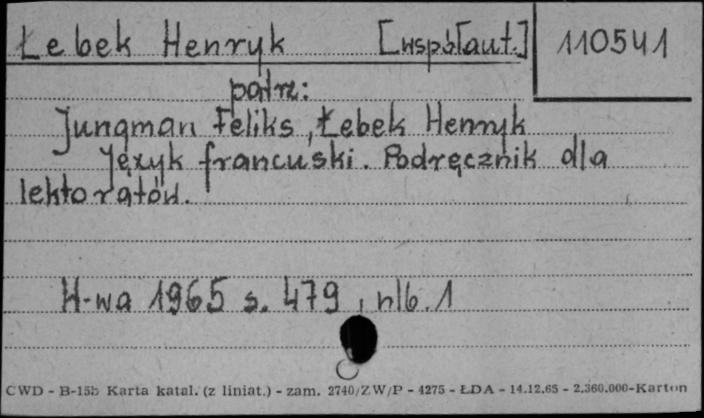 Łebek Henryk [współaut.] 110541
patrz:
Jungman Feliks, Łebek Henryk
Język francuski. Podręcznik dla
lektoratów.
W-wa 1965 s. 479, nlb. 1
CWD - B-15b Karta katal. (z liniat.) - zam. 2740/ZW/P - 4275 - ŁDA - 14.12.65 - 2.360.000-Karton